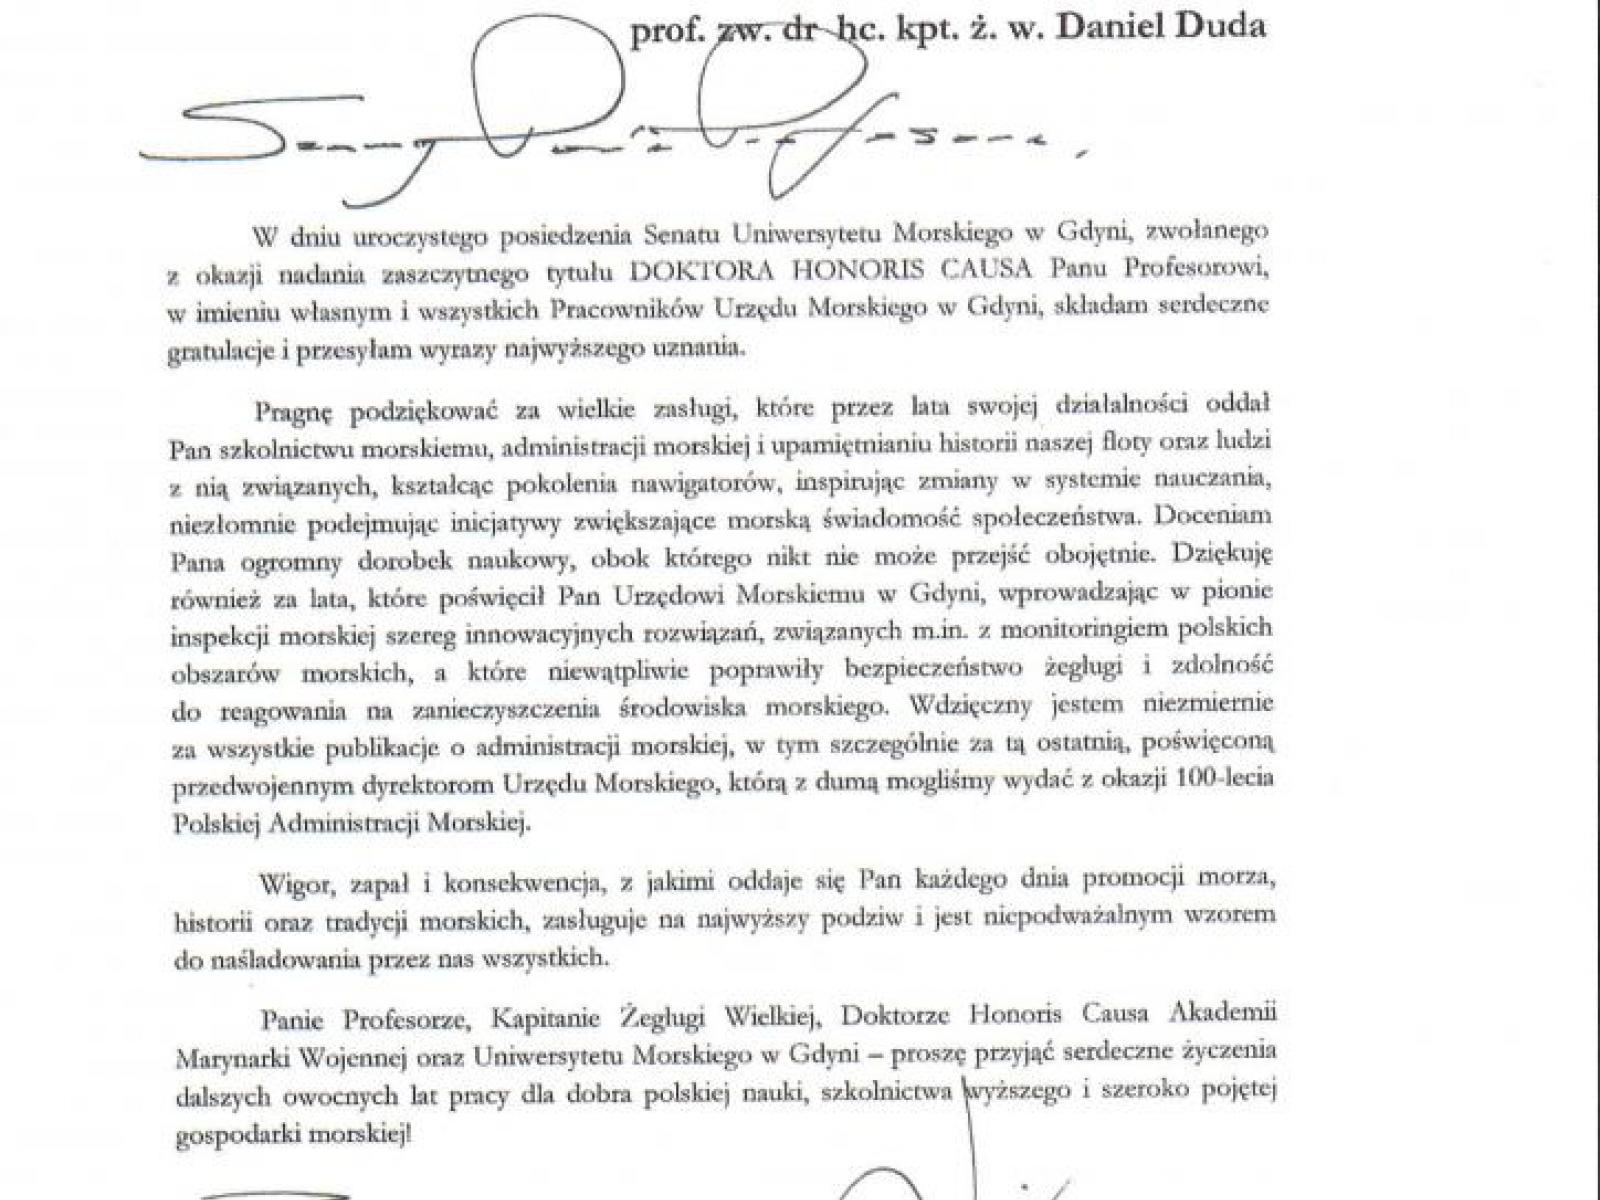 prof. zw. dr hc. kpt. ż. w. Daniel Duda
Szanowny Panie Profesorze,
W dniu uroczystego posiedzenia Senatu Uniwersytetu Morskiego w Gdyni, zwołanego
z okazji nadania zaszczytnego tytułu DOKTORA HONORIS CAUSA Panu Profesorowi,
w imieniu własnym i wszystkich Pracowników Urzędu Morskiego w Gdyni, składam serdeczne
gratulacje i przesyłam wyrazy najwyższego uznania.
Pragnę podziękować za wielkie zasługi, które przez lata swojej działalności oddał
Pan szkolnictwu morskiemu, administracji morskiej i upamiętnianiu historii naszej floty oraz ludzi
z nią związanych, kształcąc pokolenia nawigatorów, inspirując zmiany w systemie nauczania,
niezłomnie podejmując inicjatywy zwiększające morską świadomość społeczeństwa. Doceniam
Pana ogromny dorobek naukowy, obok którego nikt nie może przejść obojętnie. Dziękuję
również za lata, które poświęcił Pan Urzędowi Morskiemu w Gdyni, wprowadzając w pionie
inspekcji morskiej szereg innowacyjnych rozwiązań, związanych m.in. z monitoringiem polskich
obszarów morskich, a które niewątpliwie poprawiły bezpieczeństwo żeglugi i zdolność
do reagowania na zanieczyszczenia środowiska morskiego. Wdzięczny jestem niezmiernie
za wszystkie publikacje o administracji morskiej, w tym szczególnie za tą ostatnią, poświęconą
przedwojennym dyrektorom Urzędu Morskiego, którą z dumą mogliśmy wydać z okazji 100-lecia
Polskiej Administracji Morskiej.
Wigor, zapał i konsekwencja, z jakimi oddaje się Pan każdego dnia promocji morza,
historii oraz tradycji morskich, zasługuje na najwyższy podziw i jest niepodważalnym wzorem
do naśladowania przez nas wszystkich.
Panie Profesorze, Kapitanie Żeglugi Wielkiej, Doktorze Honoris Causa Akademii
Marynarki Wojennej oraz Uniwersytetu Morskiego w Gdyni – proszę przyjąć serdeczne życzenia
dalszych owocnych lat pracy dla dobra polskiej nauki, szkolnictwa wyższego i szeroko pojętej
gospodarki morskiej!